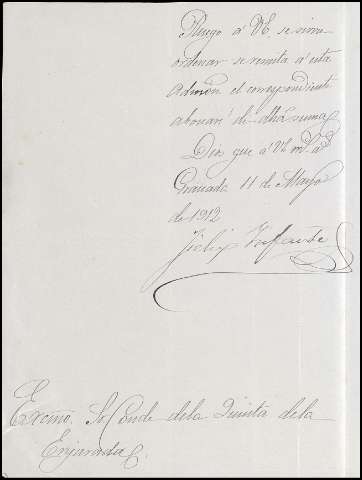 Ruego á VE. se sirva
ordenar se remita á esta
Admón el correspondiente
abonaré de dhã suma
Dios gue á VE ms. as.
Granada 11 de Mayo
de 1912
Félix Infante
Excmo. Sr Conde de la Quinta de la
Enjarada